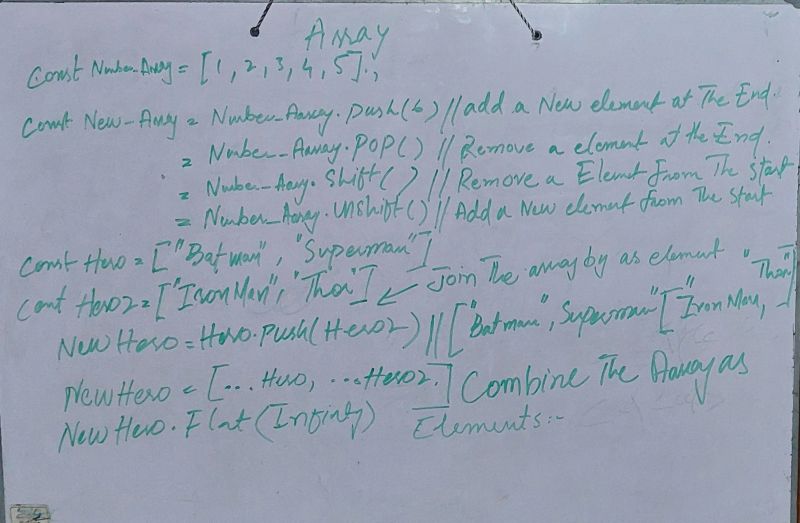 Array
Const Number_Array = [1, 2, 3, 4, 5].,
Const New_Array = Number_Array.push(6) // add a New element at The End.
= Number_Array.POP() // Remove a element at the End.
= Number_Array.Shift() // Remove a Element from The Start
= Number_Array.Unshift() // Add a New element from The Start
Const Hero = ["Batman", "Superman"]
Const Hero2 = ["IronMan", "Thor"] ← Join The array by as element
NewHero = Hero.push(Hero2) // ["Batman", Superman" ["Iron Man, "Thor"]
NewHero = [...Hero, ...Hero2.] Combine The Array as
NewHero.Flat(Infinity) Elements:-